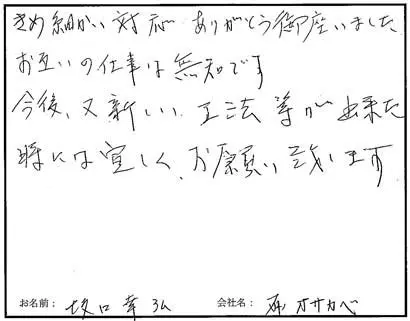 きめ細かい対応ありがとう御座いました
お互いの仕事は無知です
今後、又新しい工法等が出来た
時には宜しくお願い致します
お名前： 坂口幸弘 会社名： ㈱オサカベ